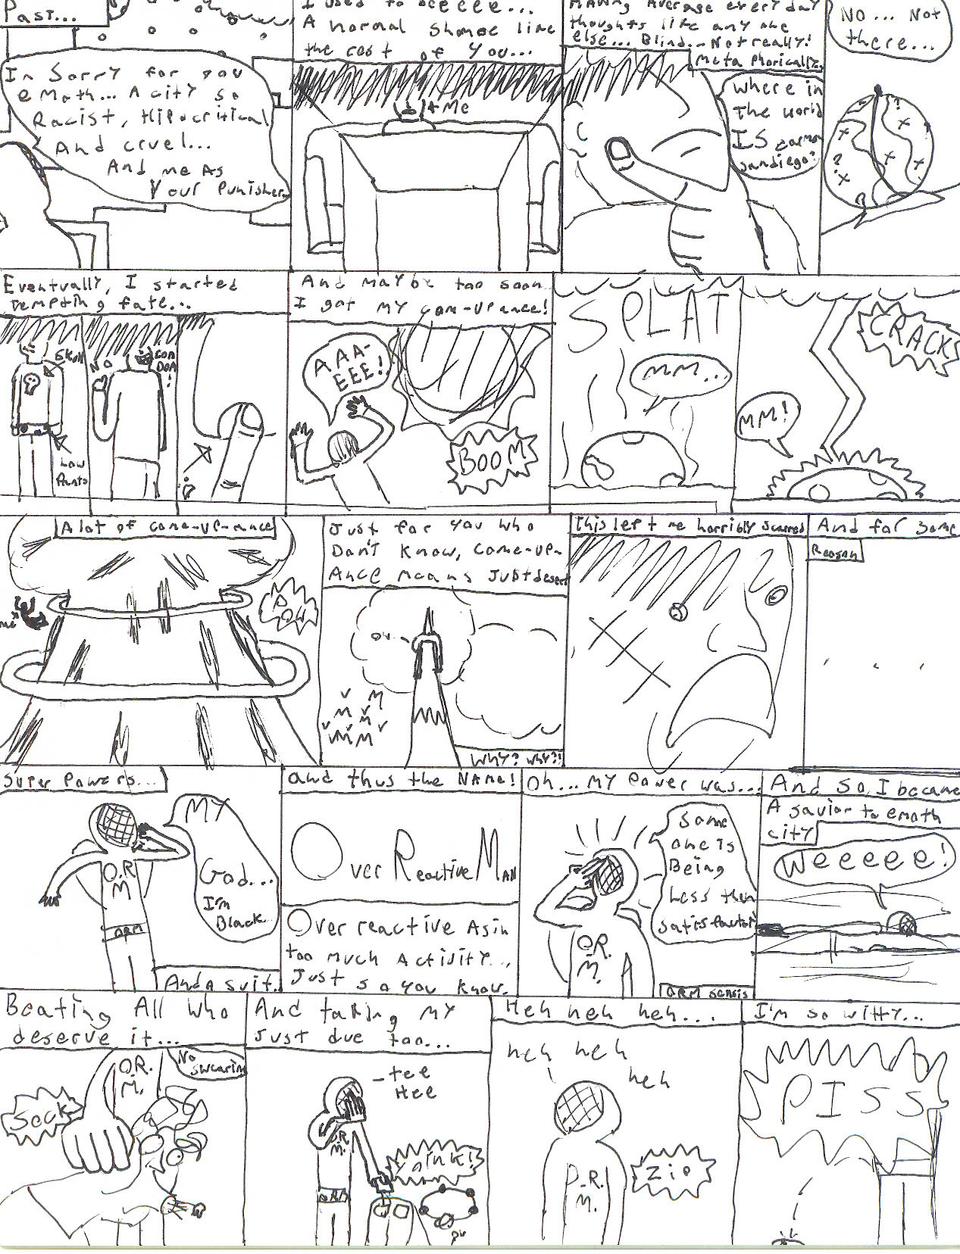 Past...
Im Sorry for you
emoth... A city so
Racist, Hipocritical
And cruel...
And me As
Your Punisher
I used to beeeee...
A normal Shmoe like
the rest of you...
Me
Having Average every day
thoughts like any one
else... Blind... Not really!
Metaphorically.
Where in
The World
IS carmen
sandiego?
No... Not
there...
Eventually, I started
Tempting fate...
Skull
Low
Pants
No
Con
Dom
!
And maybe too soon
I got my com-upance!
AAA-
EEE!
BOOM
SPLAT
MM...
CRACK
MM!
A lot of come-up-ance
me
POW
Just for you who
Don't know, come-up-
Ance means Just desert
ow
Why? Why?!
This left me horribly scarred
And for some
Reason
. . .
Super Powers...
O.R.
M.
ORM
My
God...
I'm
Black
And a suit.
and thus the NAME!
Over Reactive Man
Over reactive As in
too much Activity...
Just so you know.
Oh... My Power was...
O.R.
M.
Some
one is
Being
Less then
satisfactory
ORM sensis
And so, I became
A savior to emoth
city
Weeeee!
Beating All Who
deserve it...
O.R.
M.
No
swearing
Sock
And taking my
Just due too...
-tee
Hee
O.R.
M.
ORM
Yoink!
ow
Heh heh heh...
heh heh
heh
O.R.
M.
Zip
I'm so witty...
PISS